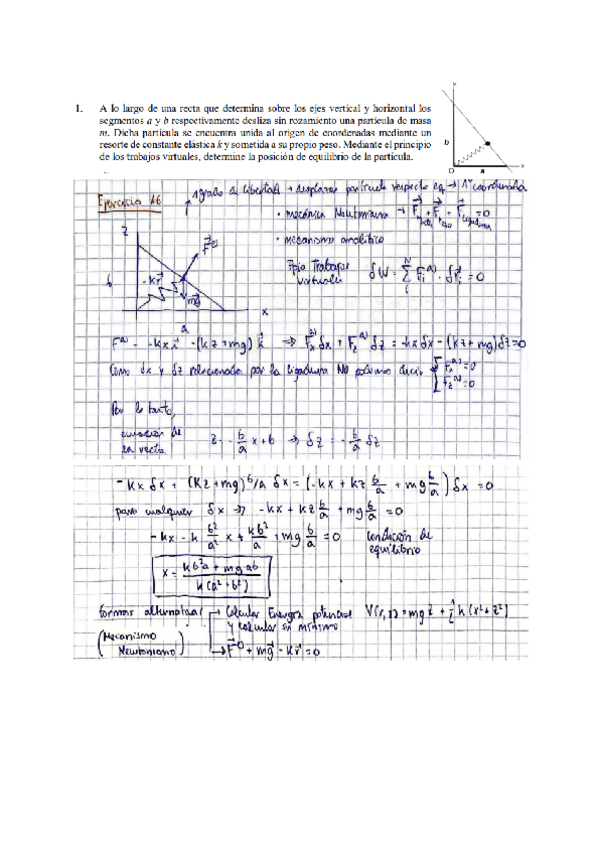 1. A lo largo de una recta que determina sobre los ejes vertical y horizontal los
segmentos a y b respectivamente desliza sin rozamiento una partícula de masa
m. Dicha partícula se encuentra unida al origen de coordenadas mediante un
resorte de constante elástica k y sometida a su propio peso. Mediante el principio
de los trabajos virtuales, determine la posición de equilibrio de la partícula.
y
b
O
a
x
Ejercicio 16
1 grado de libertad
1 coordenada
• mecánica Newtoniana →
= 0
• mecanismo analítico
Ppio Trabajos
Virtuales
δW = Σ F_i^(a) · δr_i = 0
z
b
-kr
mg
a
x
F^(a) = -kx i - (kz + mg) k ⇒ F_x^(a) δx + F_z^(a) δz = -kx δx - (kz + mg) δz = 0
Como δx y δz relacionado por la ligadura NO podemos decir { F_x^(a) = 0
F_z^(a) = 0
Por lo tanto,
ecuación de
la recta
z = -b/a x + b ⇒ δz = -b/a δz
-kx δx + (kz + mg) b/a δx = (-kx + kz b/a + mg b/a) δx = 0
para cualquier δx ⇒ -kx + kz b/a + mg b/a = 0
-kx - k b²/a² x + kb²/a + mg b/a = 0 condición de
equilibrio
x = (kb²a + mg ab) / (k(a² + b²))
formas alternativas → Calcular Energía potencial V(x,z) = mgz + 1/2 k(x² + z²)
y calcular su mínimo
(Mecanismo
Newtoniano)
+ mg - kr = 0